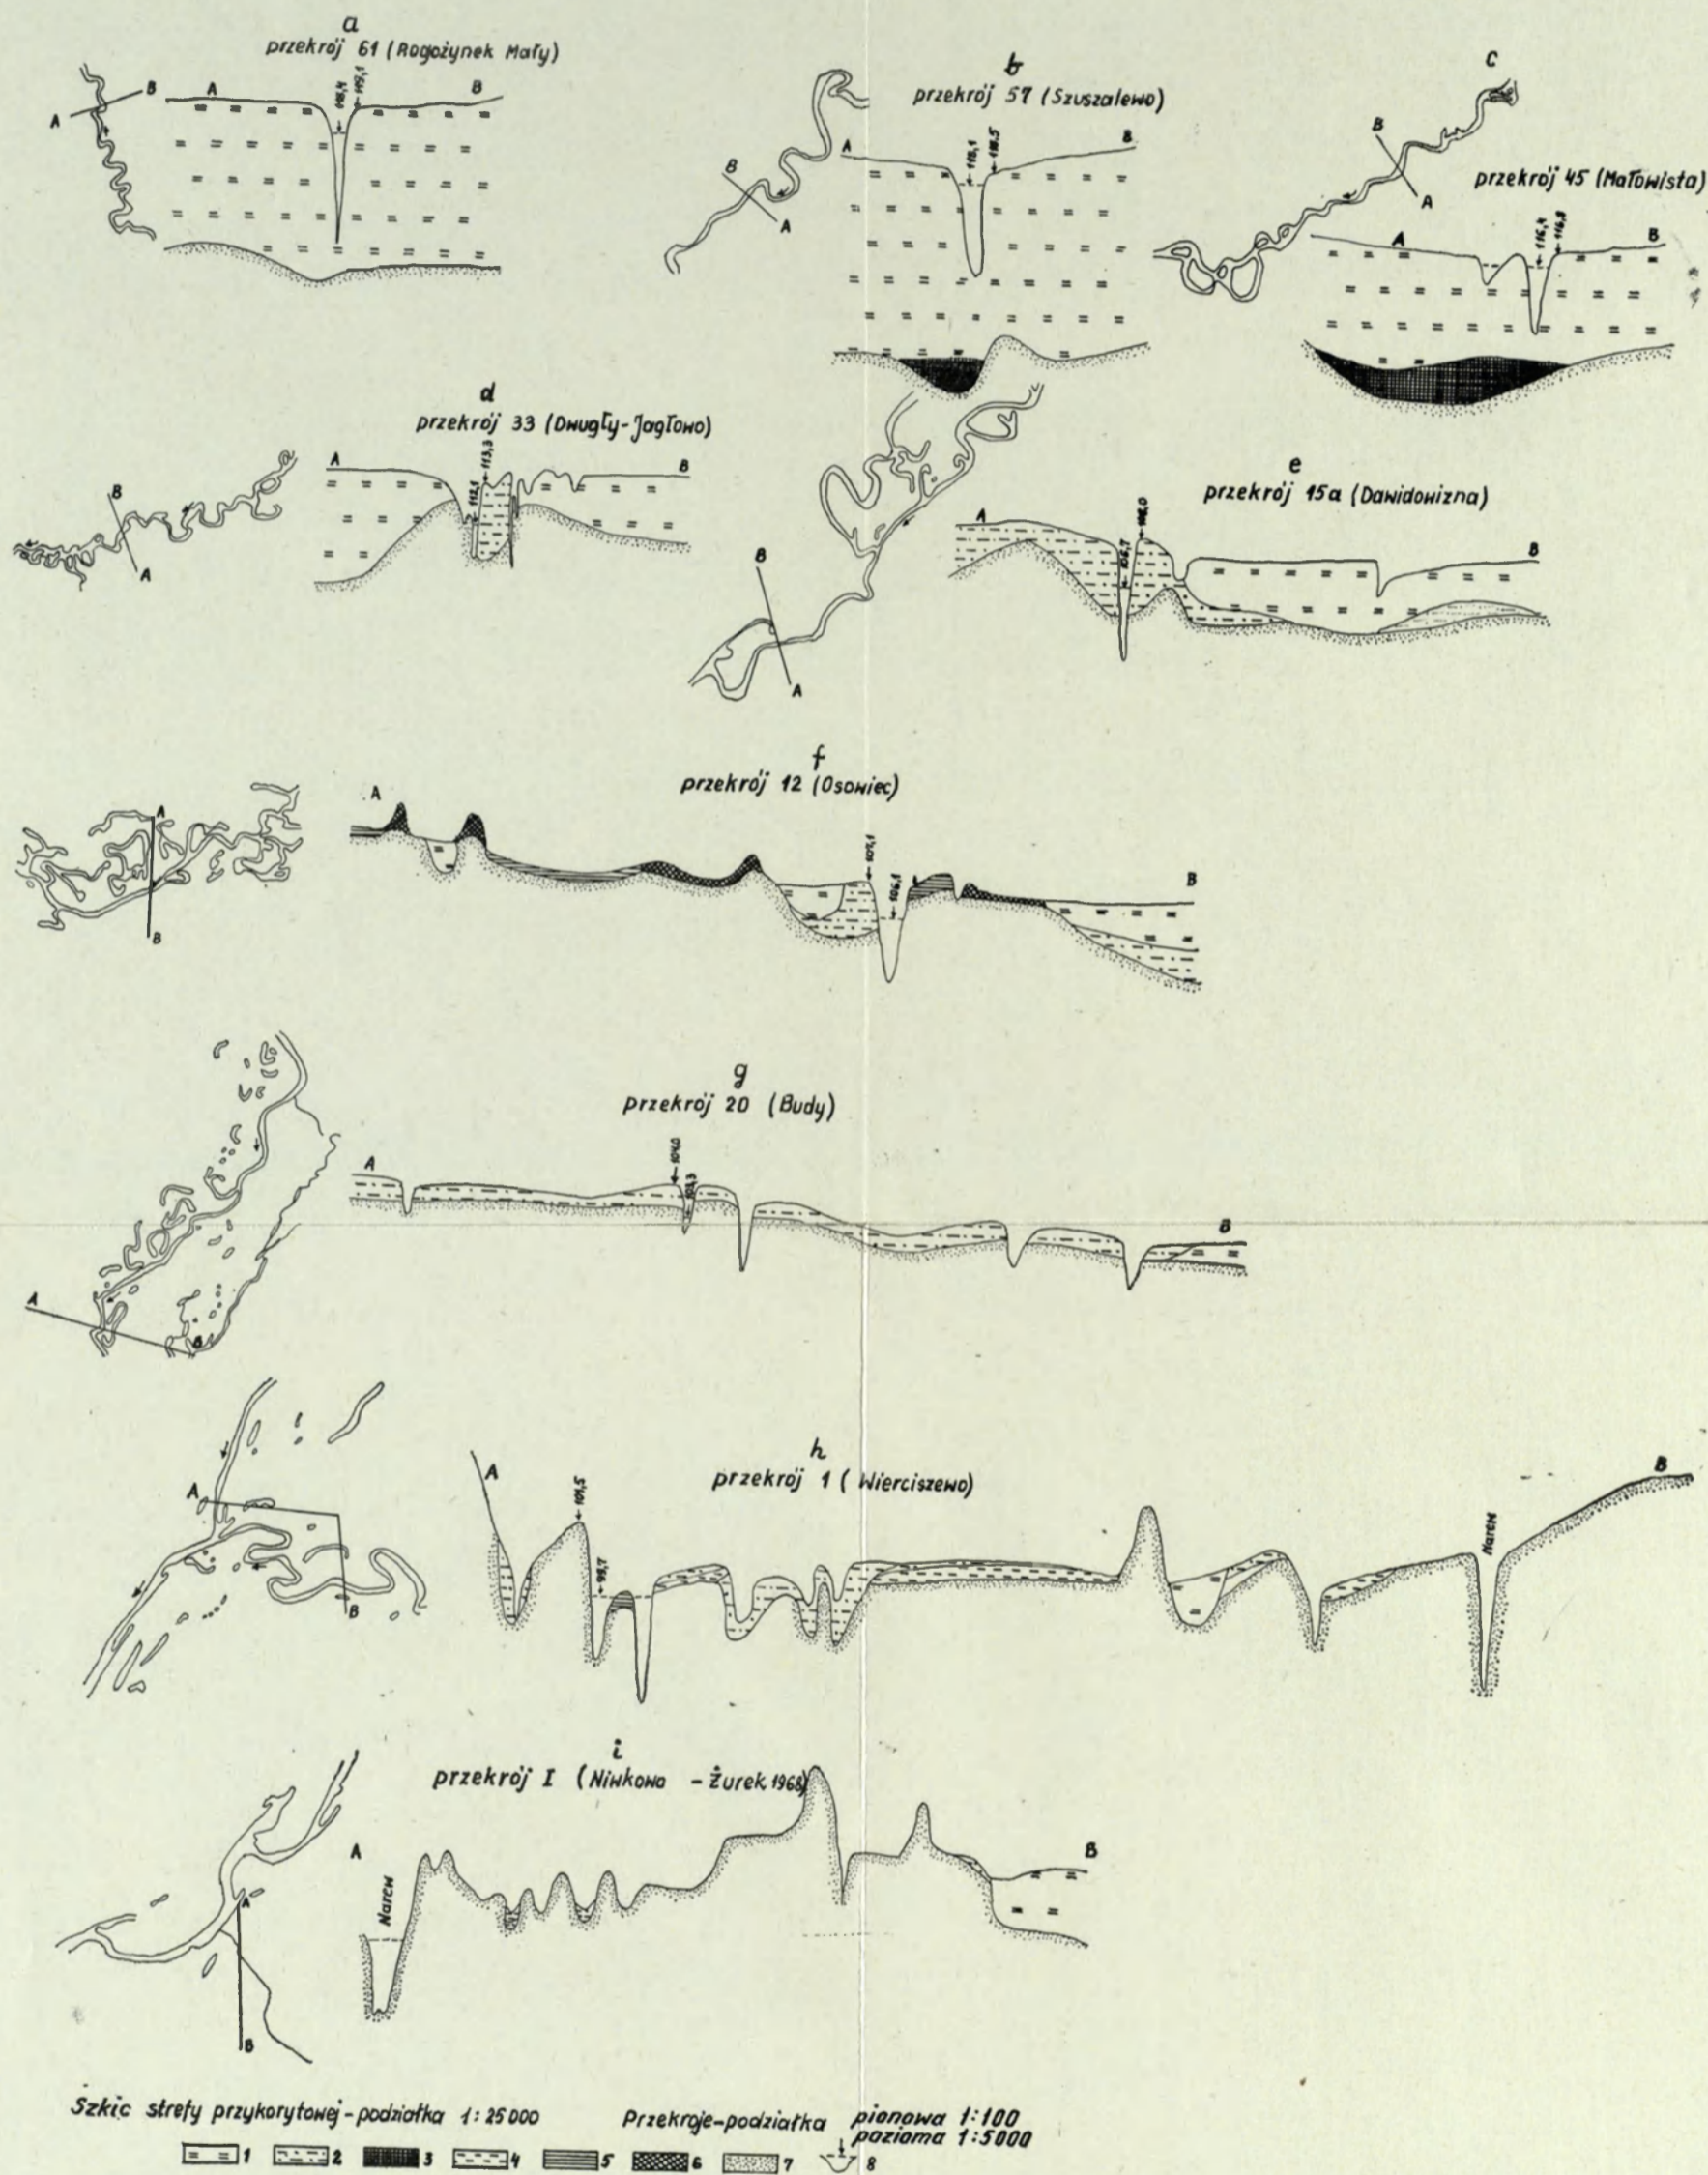 a
przekrój 61 (Rogożynek Mały)
A B
A B
118,4 119,1
b
przekrój 57 (Szuszalewo)
B A
A B
118,1 118,5
c
przekrój 45 (Małowista)
B A
A B
116,4 116,8
d
przekrój 33 (Dwugły-Jagłowo)
B A
A B
112,1 113,3
e
przekrój 15a (Dawidowizna)
B A
A B
f
przekrój 12 (Osowiec)
A B
A B
107,1
106,1
g
przekrój 20 (Budy)
A B
A B
104,0
103,3
h
przekrój 1 (Wierciszewo)
A B
A B
101,5
99,7
Narew
i
przekrój I (Niwkowo - Żurek 1968)
A B
A B
Narew
Szkic strefy przykorytowej - podziałka 1:25 000
Przekroje-podziałka pionowa 1:100
pozioma 1:5000
1 2 3 4 5 6 7 8